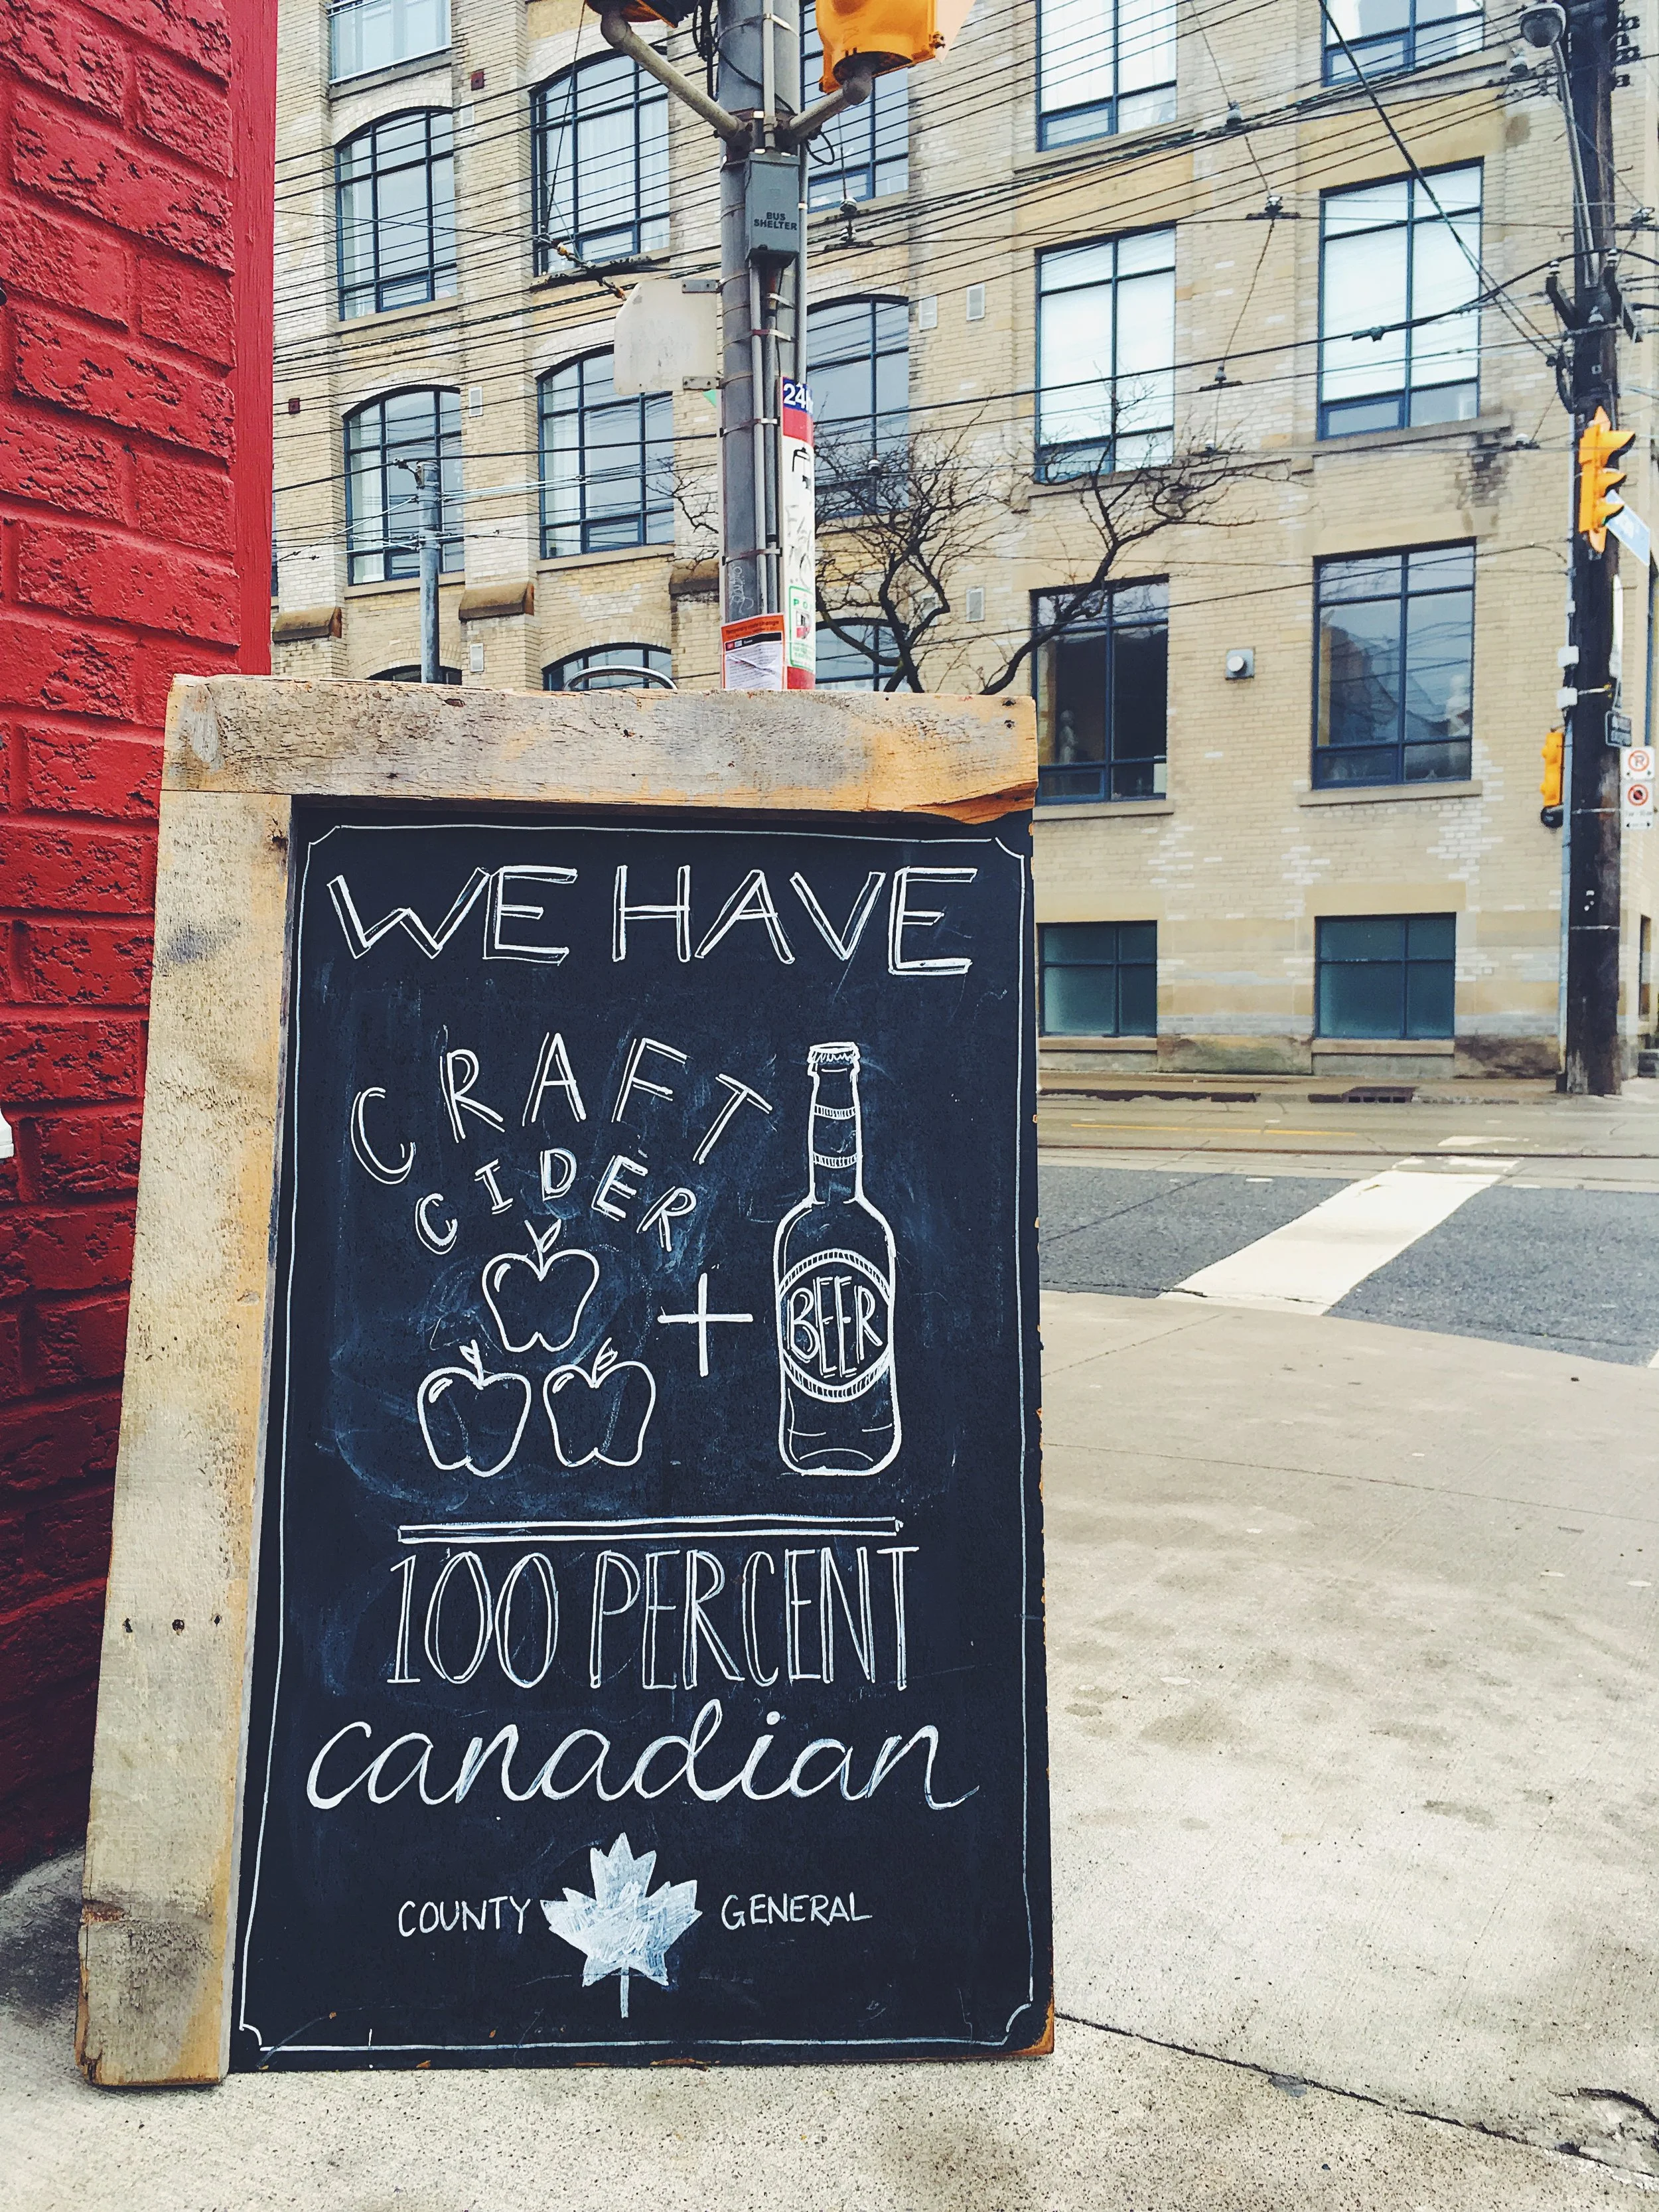 BUS
SHELTER
24
WE HAVE
CRAFT
CIDER
+
BEER
100 PERCENT
canadian
COUNTY GENERAL